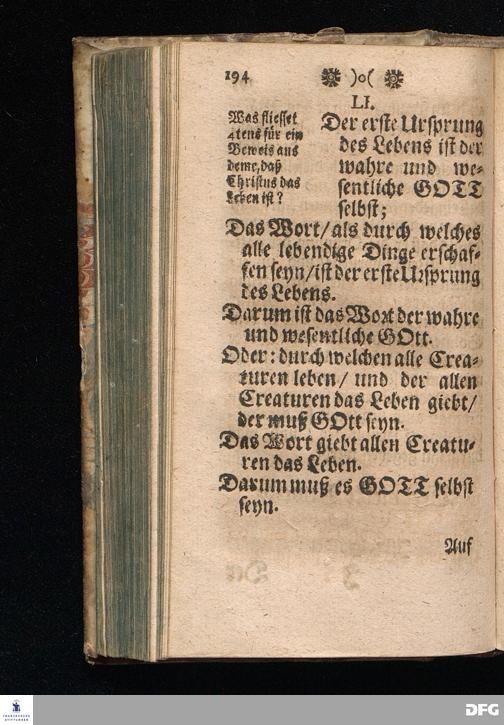 194 )o(
LI.
Was fliesset
4tens für ein
Beweis aus
deme, daß
Christus das
Leben ist?
Der erste Ursprung
des Lebens ist der
wahre und we-
sentliche GOTT
selbst;
Das Wort/ als durch welches
alle lebendige Dinge erschaf-
fen seyn/ ist der erste Ursprung
des Lebens.
Darum ist das Wort der wahre
und wesentliche GOtt.
Oder: durch welchen alle Crea-
turen leben/ und der allen
Creaturen das Leben giebt/
der muß GOtt seyn.
Das Wort giebt allen Creatu-
ren das Leben.
Darum muß es GOTT selbst
seyn.
Auf
FRANCKESCHE
STIFTUNGEN
DFG